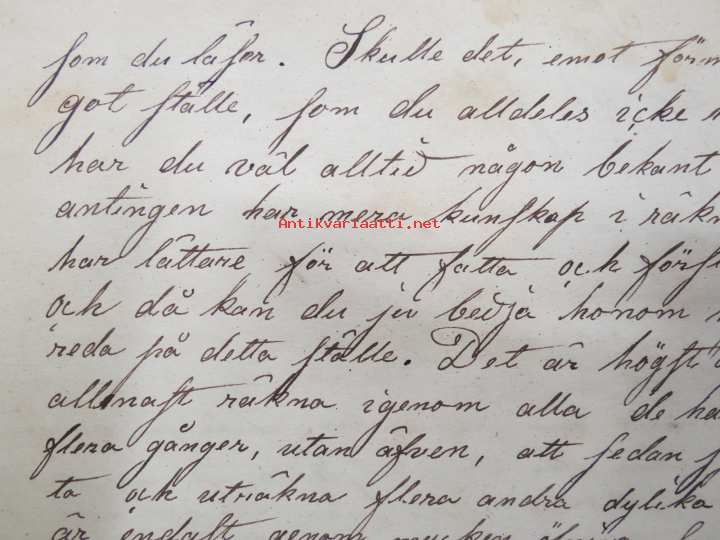 som du läser. Skulle det, emot förm
got ställe, som du alldeles icke
har du väl alltid någon bekant
antingen har mera kunskap i räkn
Antikvariaatti.net
har lättare för att fatta och förs
och då kan du ju bedja honom
reda på detta ställe. Det är högst
allenast räkna igenom alla de ha
flera gånger, utan äfven, att sedan
ta och uträkna flera andra dylika
är endast genom mycken öfning